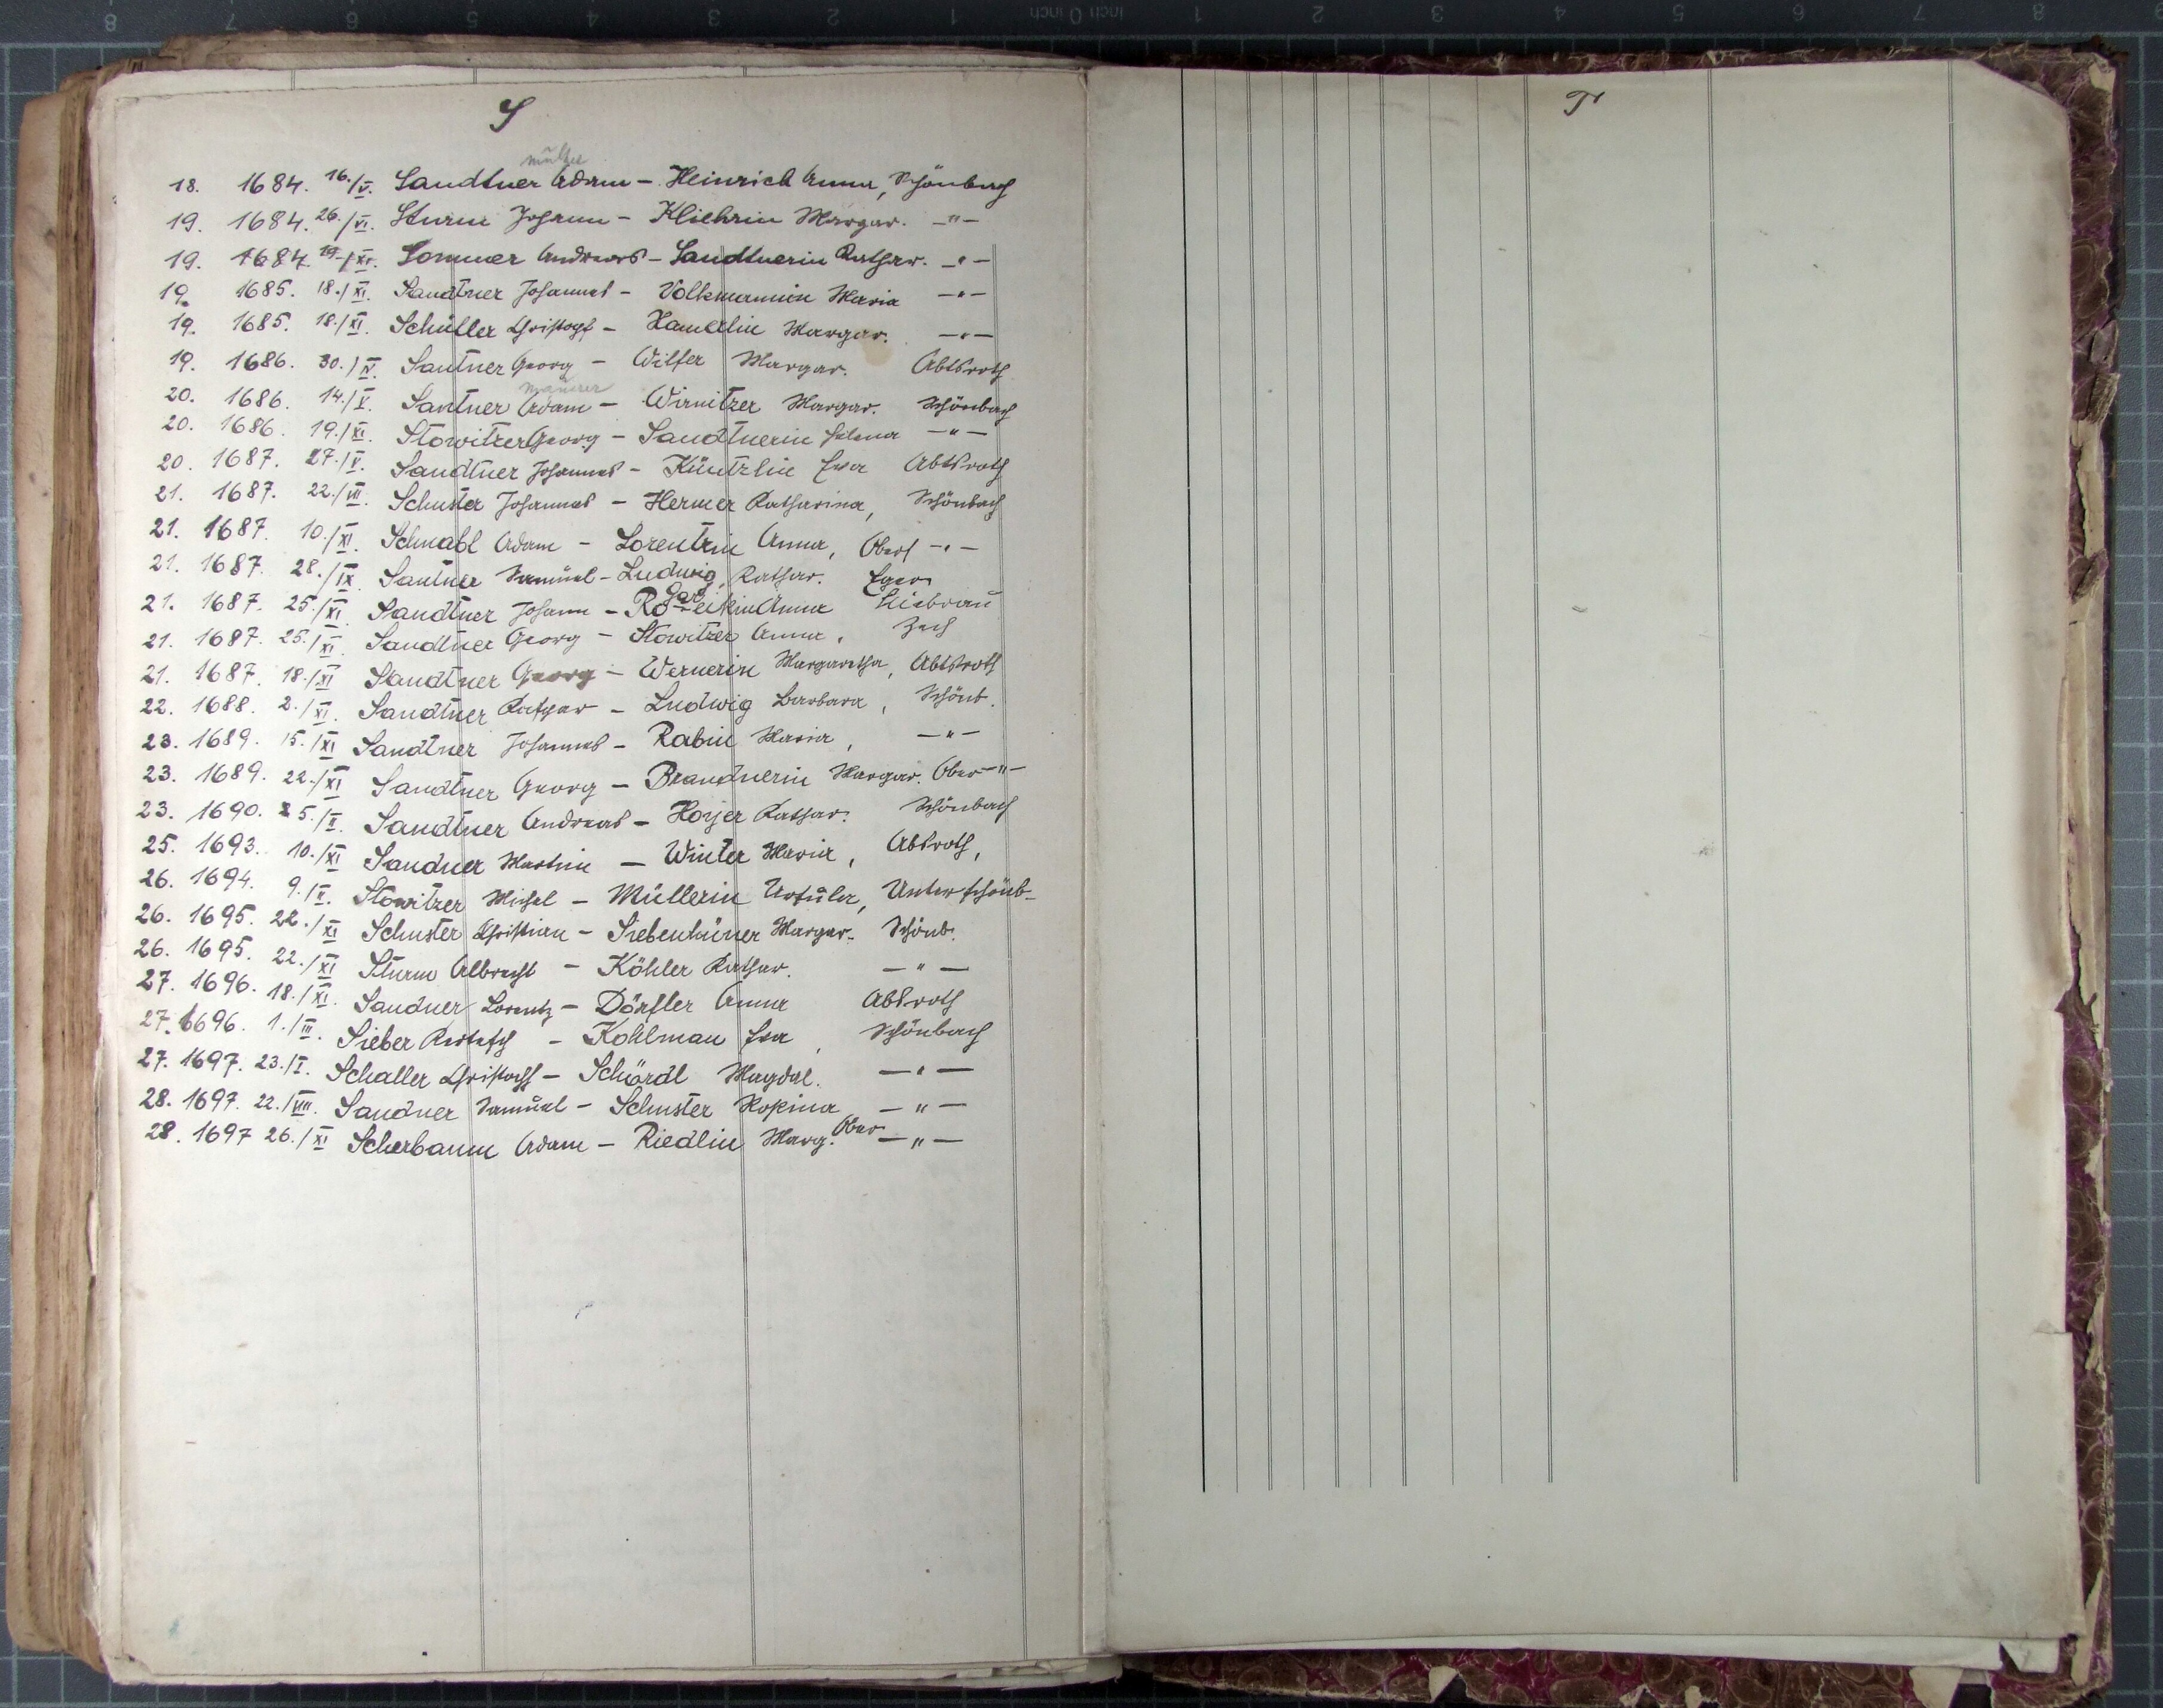 S
müller
18. 1684. 16./V. Sandtner Adam – Heinrich Anna, Schönbach
19. 1684. 26./VI. Sturm Johann – Kliehrin Margar. –"–
19. 1684. 19./XI. Sommer Andreas – Sandtnerin Kathar. –"–
19. 1685. 18./XI. Sandtner Johannes – Volkmannin Maria –"–
19. 1685. 18./XI. Schüller Christoph – Hamerlin Margar. –"–
19. 1686. 30./IV. Santner Georg – Wilfer Margar. Abtsroth
maurer
20. 1686. 14./V. Santner Adam – Wirnitzer Margar. Schönbach
20. 1686. 19./XI. Stowitzer Georg – Sandtnerin Helena –"–
20. 1687. 27./V. Sandtner Johannes – Küntzlin Eva Abtsroth
21. 1687. 22./VII. Schuster Johannes – Hermer Katharina, Schönbach
21. 1687. 10./XI. Schnabl Adam – Lorentzin Anna, Obers –"–
21. 1687. 28./IX. Santner Samuel – Ludwig, Kathar. Eger
21. 1687. 25./XI. Sandtner Johann – Anna
21. 1687. 25./XI. Sandtner Georg – Stowitzer Anna, Zech
21. 1687. 18./XI Sandtner Georg – Wernerin Margaretha, Abtsroth
22. 1688. 2./XI. Sandtner Kaspar – Ludwig Barbara, Schönb.
23. 1689. 15./XI Sandtner Johannes – Rabin Maria, –"–
23. 1689. 22./XI Sandtner Georg – Brandnerin Margar. Ober –"–
23. 1690. 25./II. Sandtner Andreas – Hoyer Kathar. Schönbach
25. 1693. 10./XI Sandner Martin – Winter Maria, Abtsroth,
26. 1694. 9./V. Stowitzer Michel – Müllerin Ursula, Unterschönb-
26. 1695. 22./XI Schuster Christian – Siebenhüner Margar. Schönb.
26. 1695. 22./XI Sturm Albrecht – Köhler Kathar. –"–
27. 1696. 18./XI. Sandner Lorentz – Dörfler Anna Abtsroth
27. 1696. 1./III. Sieber – Kohlman Eva, Schönbach
27. 1697. 23./I. Schaller Christoph – Schördl Magdal. –"–
28. 1697. 22./VIII. Sandner Samuel – Schuster Rosina –"–
28. 1697 26./XI Scherbaum Adam – Riedlin Marg. Ober –"–
T